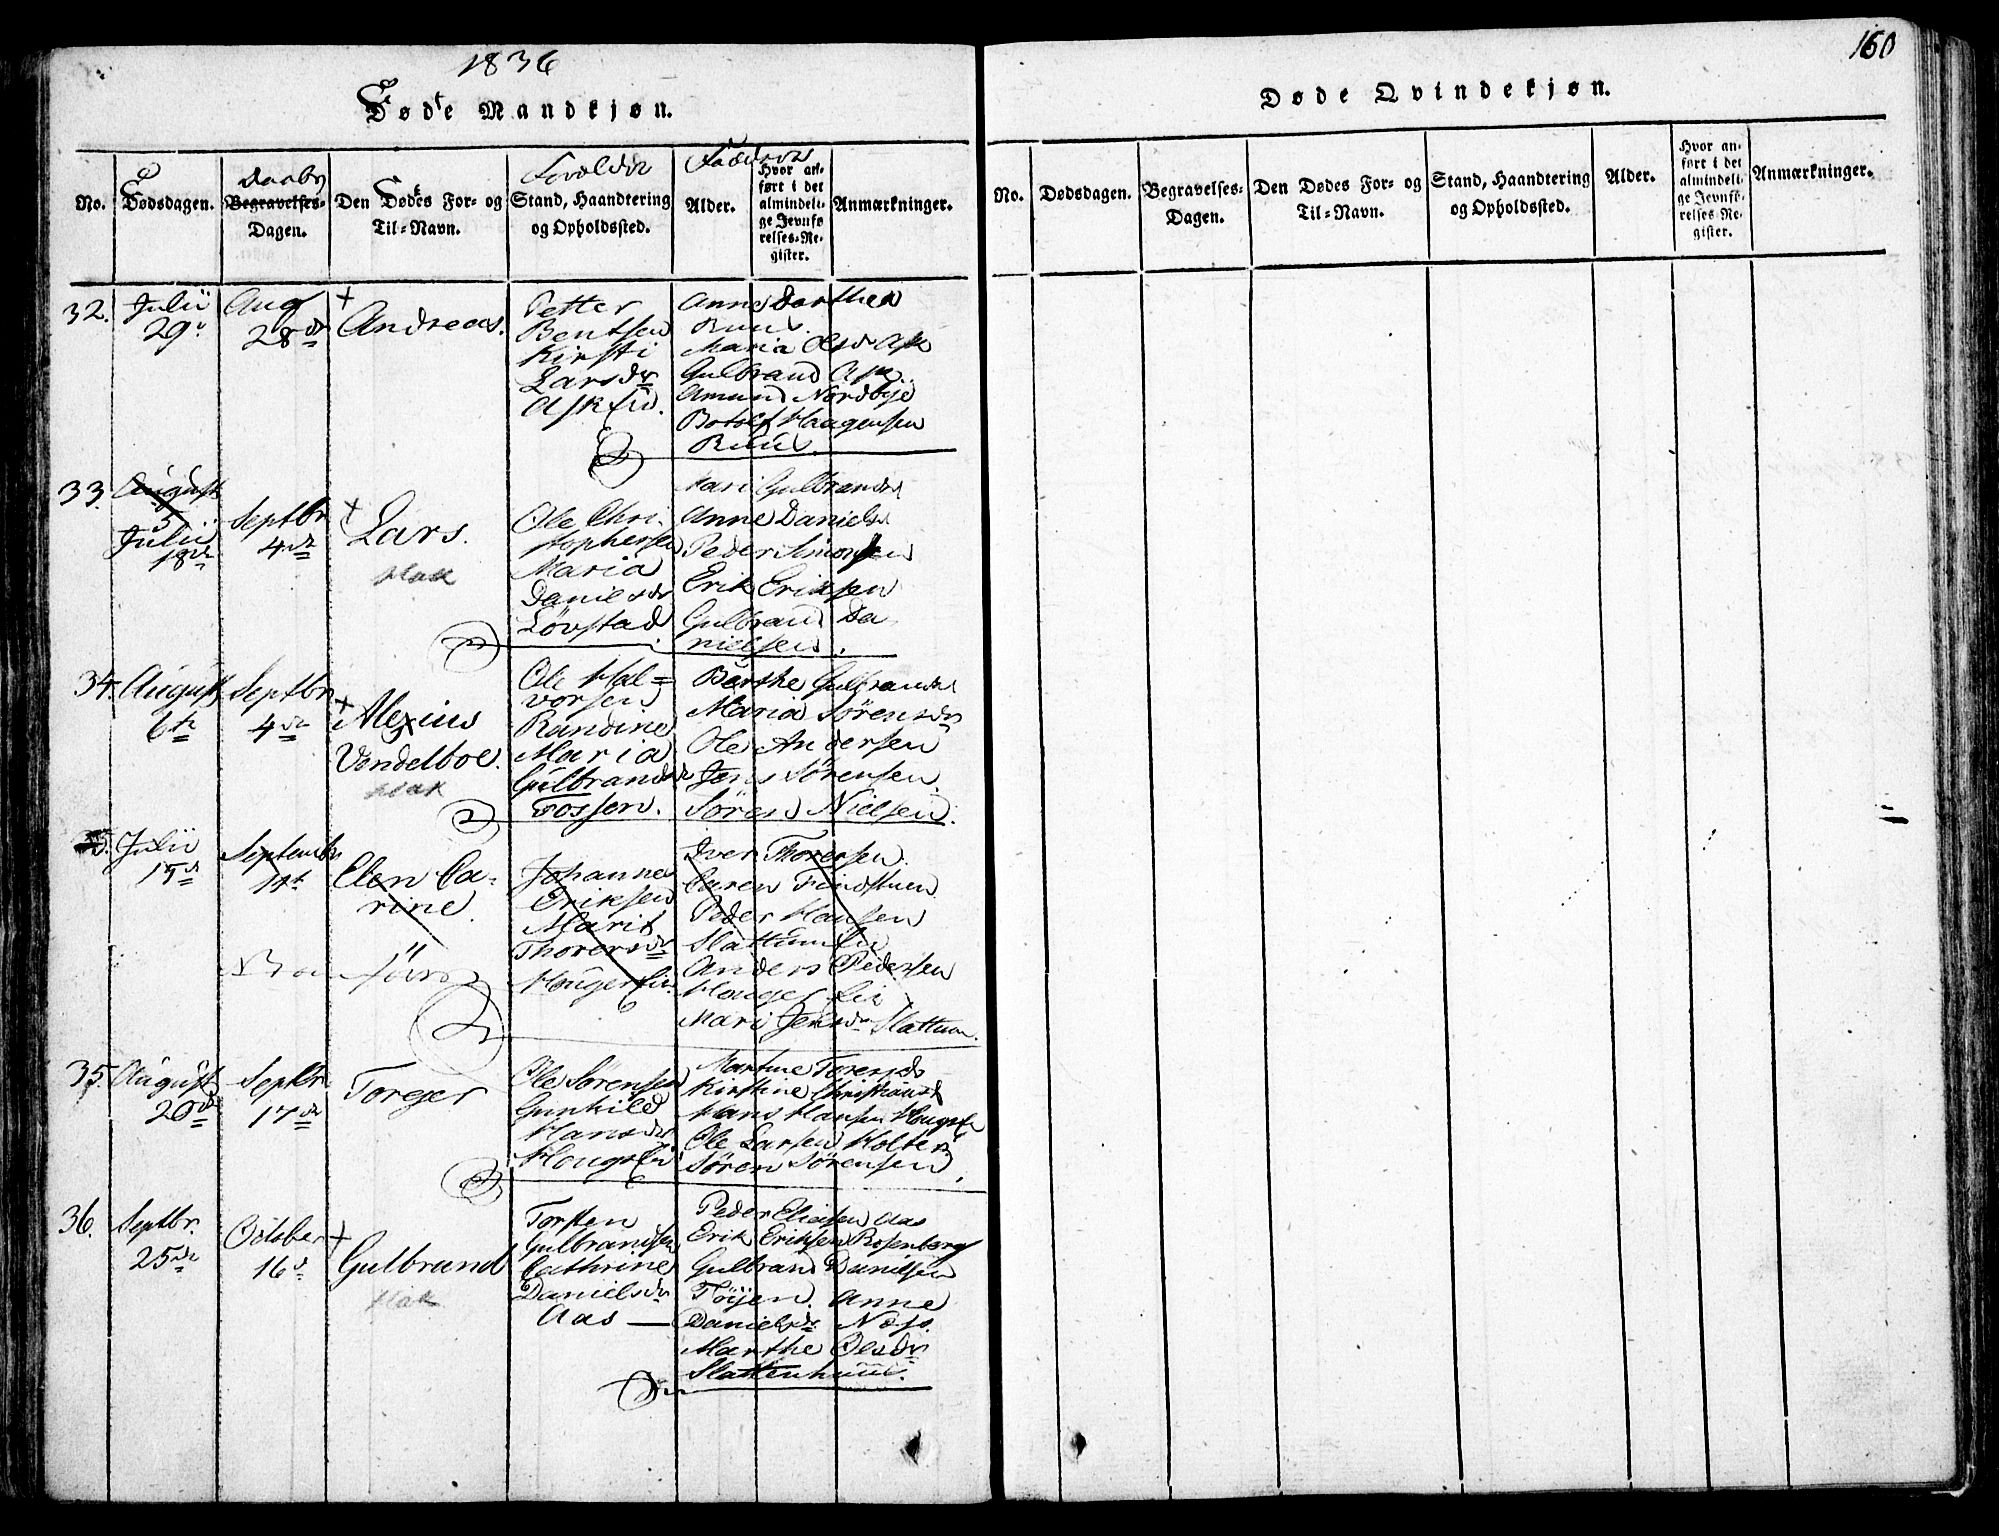 1836
Fødte Mandkjøn.
No.
Fødsdagen.
Daabs
Begravelses-
Dagen.
Den Fødtes For- og
Til-Navn.
Forældre
Stand, Haandtering
og Opholdssted.
Faddere
Alder.
Hvor an-
ført i det
almindeli-
ge Jevnfø-
relses-Re-
gister.
Anmærkninger.
32.
Julii
29.
Aug
28de
Andreas.
Petter
Bentsen
Kirsti
Larsdr
Ask Eie.
Anne Dorthea
Ruud
Maria Olsdr Ask
Gulbrand Ask
Amund Nordbye
Botolf Haagensen
Ruud.
33.
August
5
Julii
18de
Septbr
4de
Lars.
Hak
Ole Chri-
stophersen
Maria
Danielsdr
Løvstad
Kari Gulbrandsd
Anne Danielsd
Peder Simonsen
Erik Eriksen
Gulbrand Da
nielsen.
34.
August
6te
Septbr
4de
Alexius
Vendelboe.
Hak
Ole Hal=
vorsen
Randine
Maria
Gulbrandsdr
Fossen.
Berthe Gulbrandsd
Maria Sørensdr
Ole Andersen
Jens Sørensen.
Søren Nielsen.
35.
Julii
15de
Septembr
11te
Elen Ca-
rine.
Johannes
Eriksen
Marit
Thorersdr
Houger Eie.
Iver Thorersen.
Caren Findstuen
Peder Hansen
Slattum Eie
Anders Pedersen
Houger Eie
Mari Jensdr Slattum.
35.
August
20de
Septbr
17de
Toreger
Ole Sørensen
Gunhild
Hansdr
Hougs Eie
Martine Toresdr
Kirstine Christiansd
Hans Hansen Hougs E
Ole Larsen Holter
Søren Sørensen.
36.
Septbr.
25de
October
16de
Gulbrand
Hak
Torsten
Gulbrandsen
Cathrine
Danielsdr
Aas —
Peder Eliesen Aas
Erik Eriksen Rosenborg
Gulbrand Danielsen
Töijen. Anne
Danielsdr Næss.
Marthe Olsdr
Slattenhuus.
160
Døde Qvindekjøn.
No.
Dødsdagen.
Begravelses-
Dagen.
Den Dødes For- og
Til-Navn.
Stand, Haandtering
og Opholdssted.
Alder.
Hvor an-
ført i det
almindeli-
ge Jevnfø-
relses-Re-
gister.
Anmærkninger.